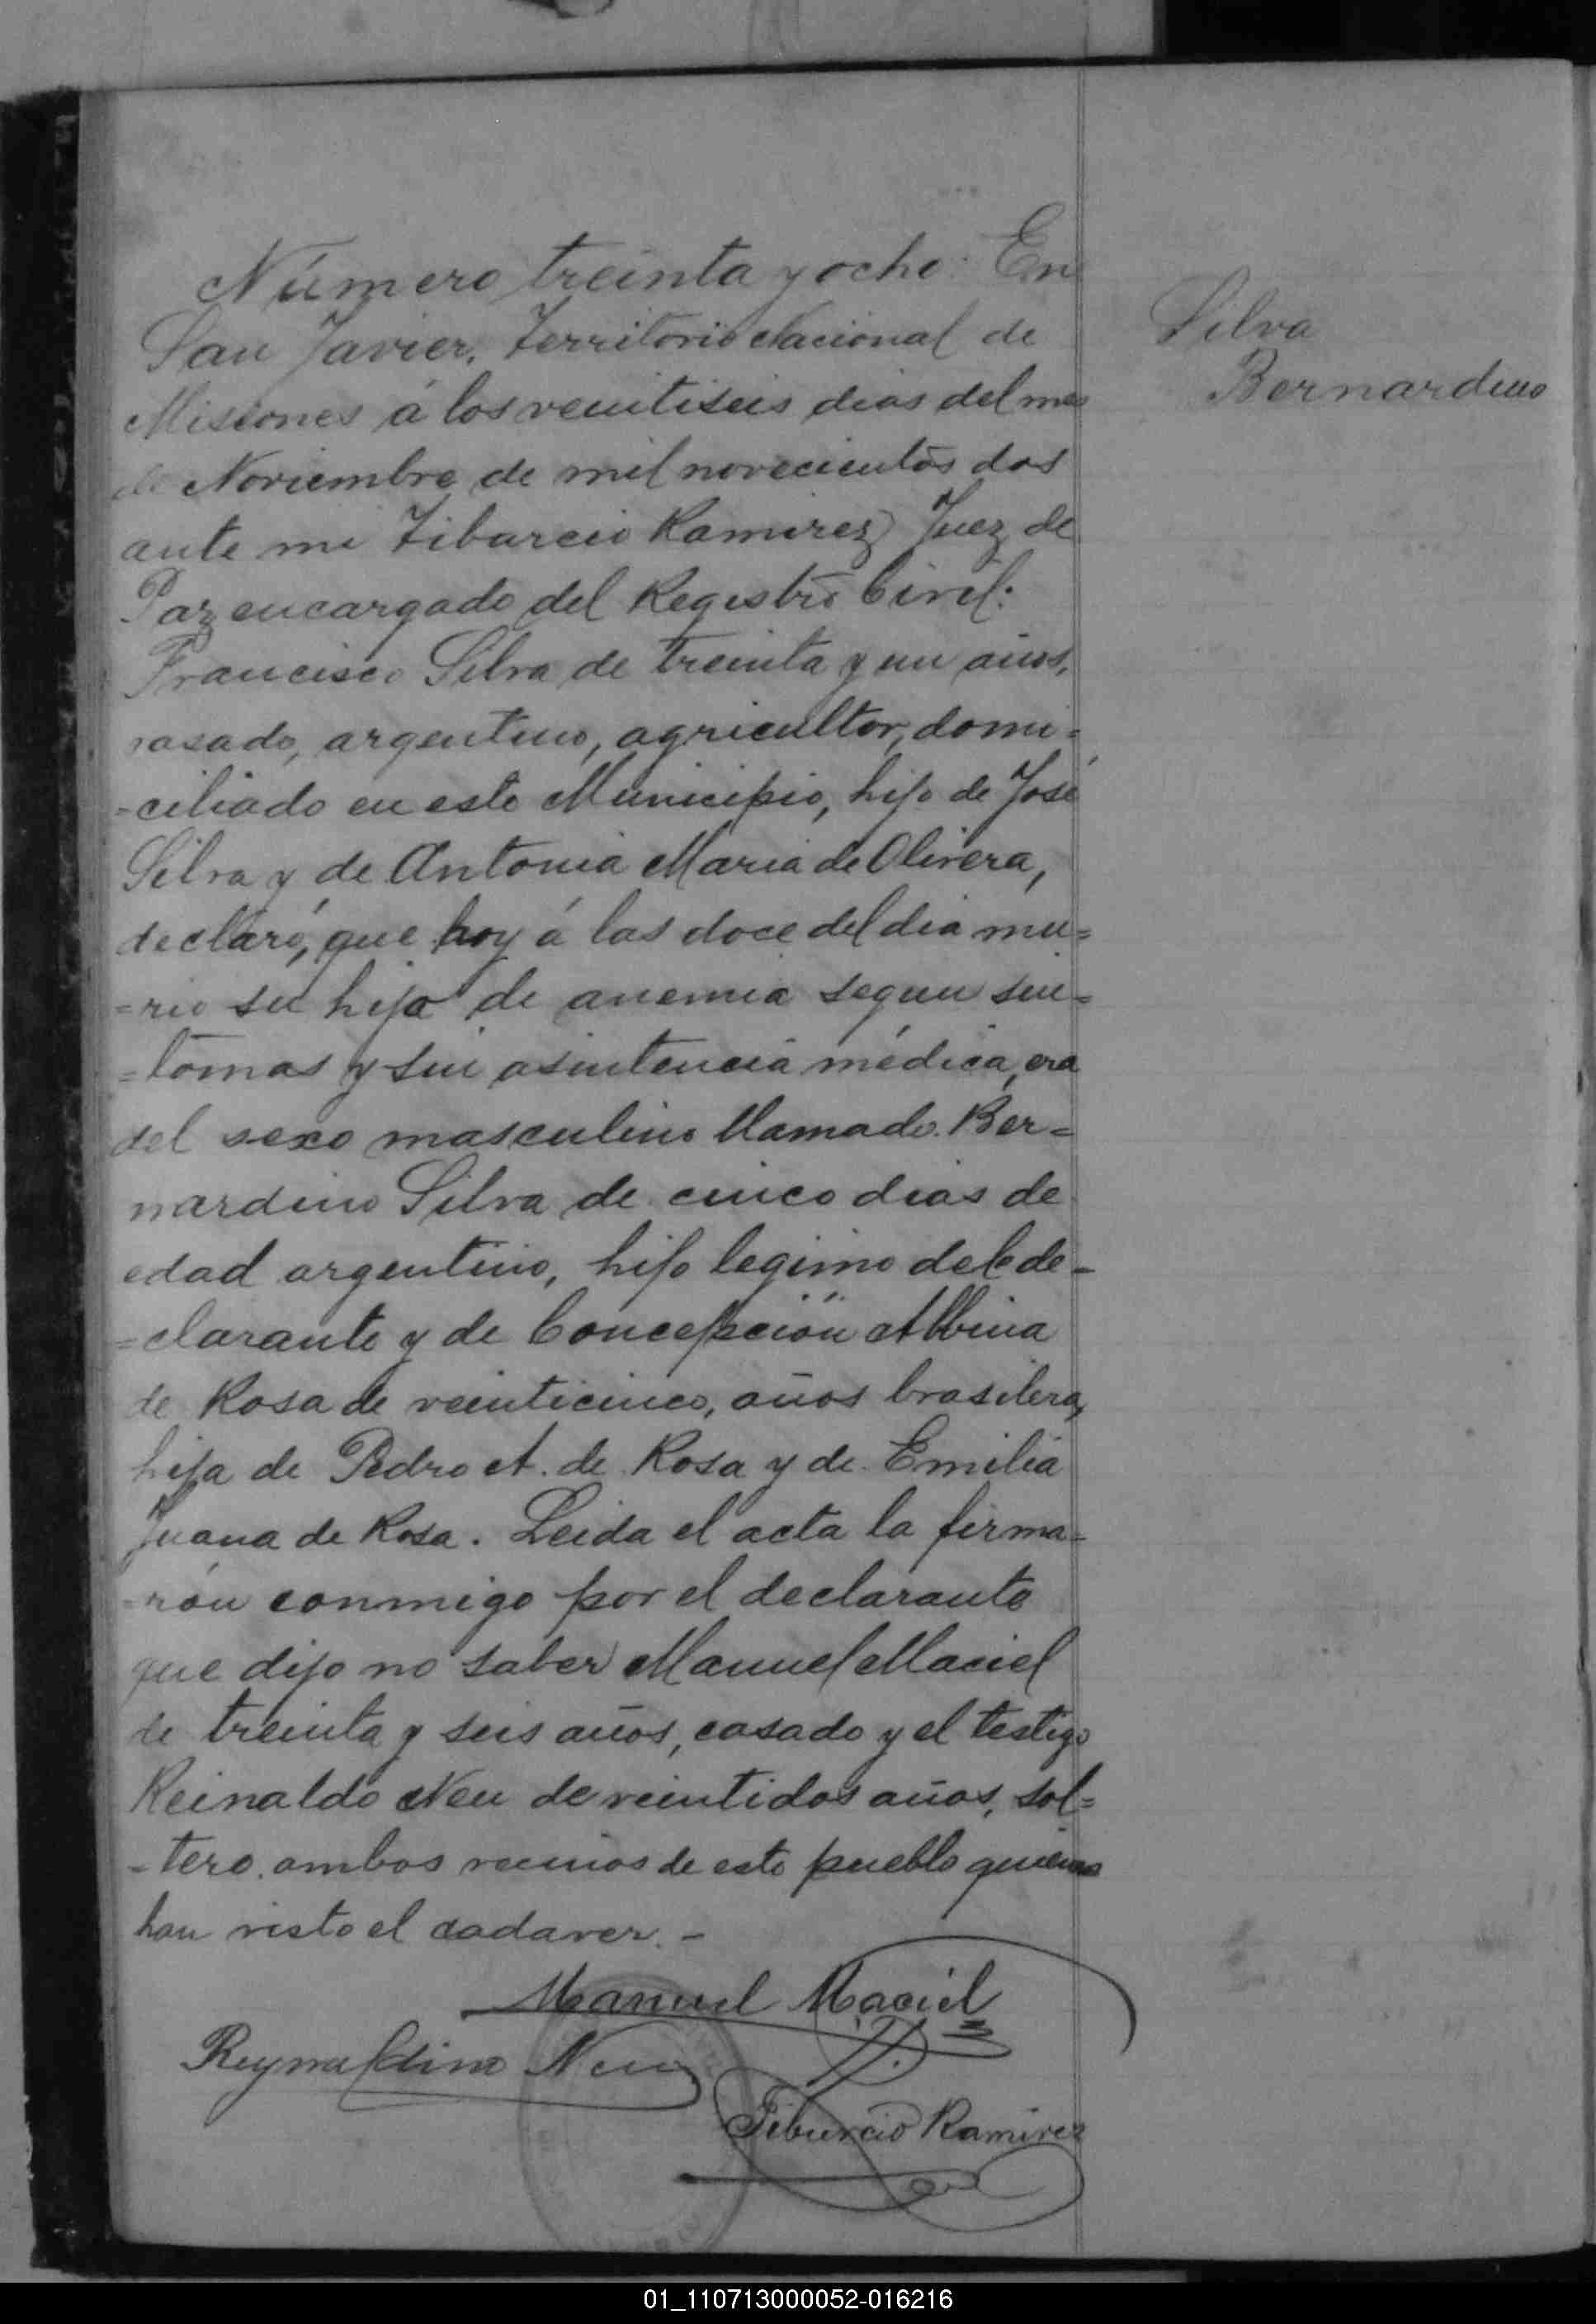 Número treinta y ocho: En
San Javier, Territorio Nacional de
Misiones á los veintiseis dias del mes
de Noviembre de mil novecientos dos
ante mi Tiburcio Ramirez Juez de
Paz encargado del Registro Civil:
Francisco Silva de treinta y un años,
casado, argentino, agricultor, domi=
-ciliado en este Municipio, hijo de José
Silva y de Antonia Maria de Olivera,
declaró, que hoy á las doce del dia mu=
=rio su hijo de anemia segun sin=
=tomas y sin asintencia médica, era
del sexo masculino llamado Ber=
nardino Silva de cinco dias de
edad argentino, hijo legimo del de-
=clarante y de Concepción Albina
de Rosa de veinticinco, años brasilera,
hija de Pedro A. de Rosa y de Emilia
Juana de Rosa. Leida el acta la firma=
=rón conmigo por el declarante
que dijo no saber Manuel Maciel
de treinta y seis años, casado y el testigo
Reinaldo Neu de veintidos años, sol=
-tero, ambos vecinos de este pueblo quienes
han visto el cadaver. -
Silva
Bernardino
Manuel Maciel
Reynaldino Neu
Tiburcio Ramirez
01_110713000052-016216